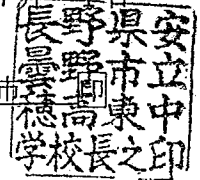 長野県安
曇野市立
穂高東中
学校長之印
市
印